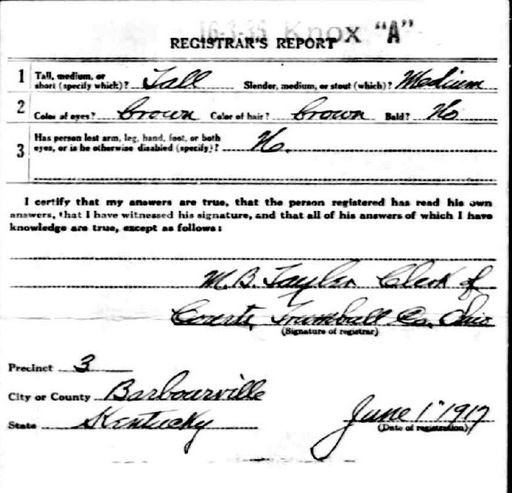 16-3-35 Knox "A"
REGISTRAR'S REPORT
1 Tall, medium, or short (specify which)? Tall Slender, medium, or stout (which)? Medium
2 Color of eyes? Brown Color of hair? Brown Bald? No
3 Has person lost arm, leg, hand, foot, or both eyes, or is he otherwise disabled (specify)? No.
I certify that my answers are true, that the person registered has read his own
answers, that I have witnessed his signature, and that all of his answers of which I have
knowledge are true, except as follows:
M.B. Taylor Clerk of
Courts, Trumbull Co. Ohio
(Signature of registrar)
Precinct 3
City or County Barbourville
State Kentucky
June 1" 1917
(Date of registration)